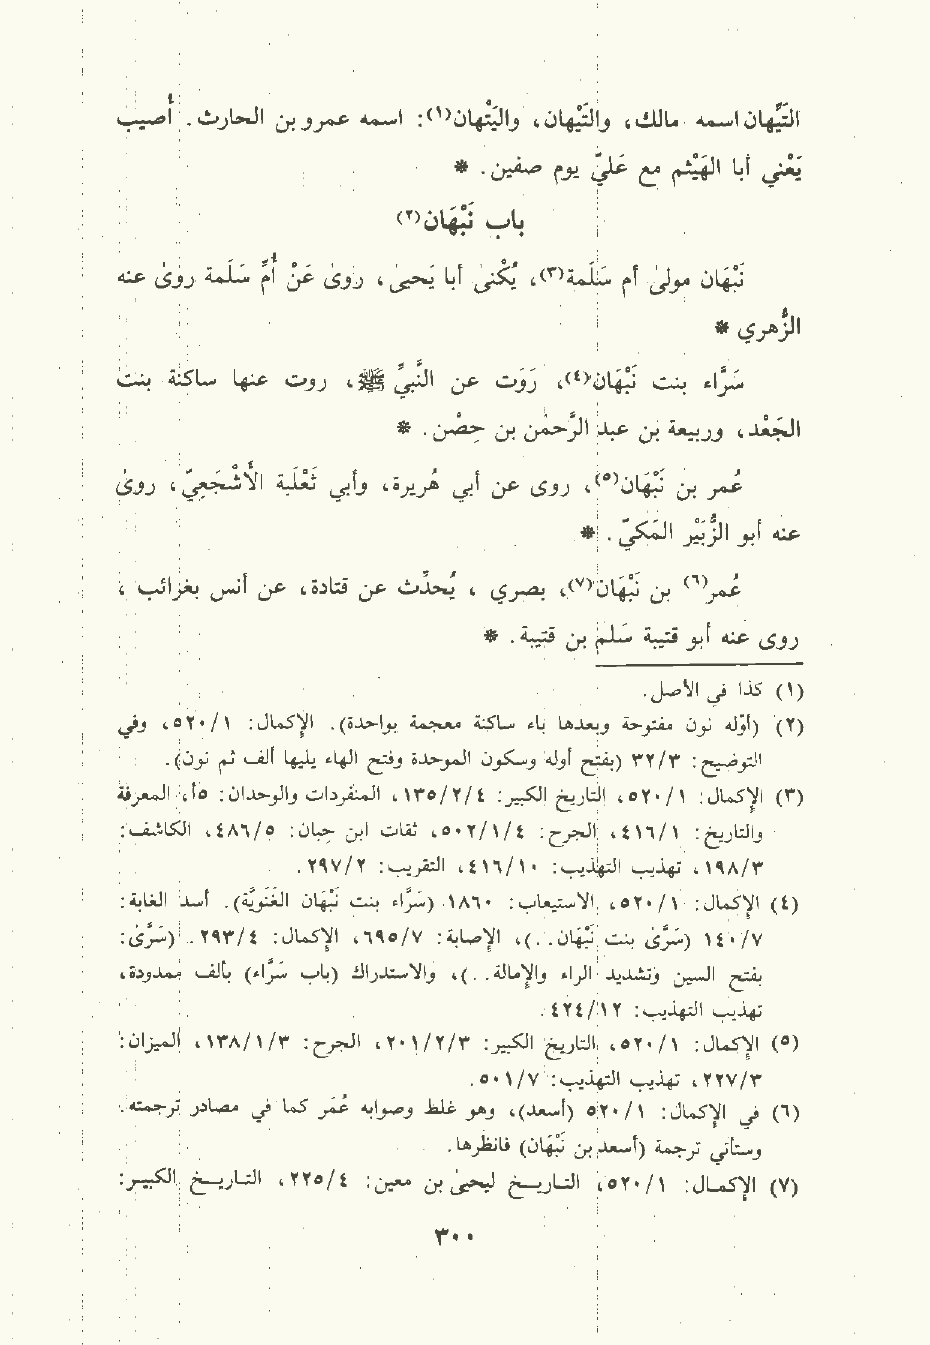 التَّيِّهان اسمه مالك، والتَّيْهان، واليَتْهان(١): اسمه عمرو بن الحارث. أُصيب
يَعْني أبا الهَيْثم مع عَليّ يوم صفين. *
باب نَبْهَان(٢)
نَبْهَان مولىٰ أم سَلَمة(٣)، يُكْنىٰ أبا يَحيىٰ، روىٰ عَنْ أُمِّ سَلَمة روىٰ عنه
الزُّهري *
سَرَّاء بنت نَبْهَان(٤)، رَوَت عن النَّبيِّ ﷺ، روت عنها ساكنة بنت
الجَعْد، وربيعة بن عبد الرَّحمٰن بن حِصْن. *
عُمر بن نَبْهَان(٥)، روى عن أبي هُريرة، وأبي ثَعْلَبة الأَشْجَعِيّ، روىٰ
عنه أبو الزُّبَيْر المَكيّ. *
عُمر(٦) بن نَبْهَان(٧)، بصري ، يُحدِّث عن قتادة، عن أنس بغرائب ،
روى عنه أبو قتيبة سَلم بن قتيبة. *
(١) كذا في الأصل.
(٢) (أوّله نون مفتوحة وبعدها باء ساكنة معجمة بواحدة). الإكمال: ٥٢٠/١، وفي
التوضيح: ٣٢/٣ (بفتح أوله وسكون الموحدة وفتح الهاء يليها ألف ثم نون).
(٣) الإكمال: ٥٢٠/١، التاريخ الكبير: ١٣٥/٢/٤، المنفردات والوحدان: ٥أ، المعرفة
والتاريخ: ٤١٦/١، الجرح: ٥٠٢/١/٤، ثقات ابن حِبان: ٤٨٦/٥، الكاشف:
١٩٨/٣، تهذيب التهذيب: ٤١٦/١٠، التقريب: ٢٩٧/٢.
(٤) الإكمال: ٥٢٠/١، الاستيعاب: ١٨٦٠. (سَرَّاء بنت نَبْهَان الغَنَويَّة). أسد الغابة:
١٤٠/٧ (سَرَّىٰ بنت نَبْهَان..)، الإصابة: ٦٩٥/٧، الإكمال: ٢٩٣/٤. (سَرَّىٰ):
بفتح السين وتشديد الراء والإمالة..)، والاستدراك (باب سَرَّاء) بألف ممدودة،
تهذيب التهذيب: ٤٢٤/١٢.
(٥) الإكمال: ٥٢٠/١، التاريخ الكبير: ٢٠١/٢/٣، الجرح: ١٣٨/١/٣، الميزان:
٢٢٧/٣، تهذيب التهذيب: ٥٠١/٧.
(٦) في الإكمال: ٥٢٠/١ (أسعد)، وهو غلط وصوابه عُمَر كما في مصادر ترجمته.
وستأتي ترجمة (أسعد بن نَبْهَان) فانظرها.
(٧) الإكمال: ٥٢٠/١، التاريخ ليحيىٰ بن معين: ٢٢٥/٤، التاريخ الكبير:
٣٠٠